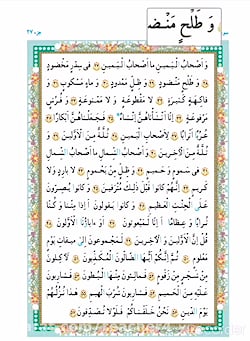 وَ طَلْحٍ مَنْضـ
جزء ٢٧
وَ أَصْحَابُ الْيَمِينِ مَا أَصْحَابُ الْيَمِينِ ﴿٢٧﴾ فِي سِدْرٍ مَخْضُودٍ
﴿٢٨﴾ وَ طَلْحٍ مَنْضُودٍ ﴿٢٩﴾ وَ ظِلٍّ مَمْدُودٍ ﴿٣٠﴾ وَ مَاءٍ مَسْكُوبٍ ﴿٣١﴾ وَ
فَاكِهَةٍ كَثِيرَةٍ ﴿٣٢﴾ لَا مَقْطُوعَةٍ وَ لَا مَمْنُوعَةٍ ﴿٣٣﴾ وَ فُرُشٍ
مَرْفُوعَةٍ ﴿٣٤﴾ إِنَّا أَنْشَأْنَاهُنَّ إِنْشَاءً ﴿٣٥﴾ فَجَعَلْنَاهُنَّ أَبْكَارًا ﴿٣٦﴾
عُرُبًا أَتْرَابًا ﴿٣٧﴾ لِأَصْحَابِ الْيَمِينِ ﴿٣٨﴾ ثُلَّةٌ مِنَ الْأَوَّلِينَ ﴿٣٩﴾ وَ
ثُلَّةٌ مِنَ الْآخِرِينَ ﴿٤٠﴾ وَ أَصْحَابُ الشِّمَالِ مَا أَصْحَابُ الشِّمَالِ
﴿٤١﴾ فِي سَمُومٍ وَ حَمِيمٍ ﴿٤٢﴾ وَ ظِلٍّ مِنْ يَحْمُومٍ ﴿٤٣﴾ لَا بَارِدٍ وَ لَا
كَرِيمٍ ﴿٤٤﴾ إِنَّهُمْ كَانُوا قَبْلَ ذَلِكَ مُتْرَفِينَ ﴿٤٥﴾ وَ كَانُوا يُصِرُّونَ
عَلَى الْحِنْثِ الْعَظِيمِ ﴿٤٦﴾ وَ كَانُوا يَقُولُونَ أَإِذَا مِتْنَا وَ كُنَّا
تُرَابًا وَ عِظَامًا أَإِنَّا لَمَبْعُوثُونَ ﴿٤٧﴾ أَوَ آبَاؤُنَا الْأَوَّلُونَ ﴿٤٨﴾
قُلْ إِنَّ الْأَوَّلِينَ وَ الْآخِرِينَ ﴿٤٩﴾ لَمَجْمُوعُونَ إِلَى مِيقَاتِ يَوْمٍ
مَعْلُومٍ ﴿٥٠﴾ ثُمَّ إِنَّكُمْ أَيُّهَا الضَّالُّونَ الْمُكَذِّبُونَ ﴿٥١﴾ لَآكِلُونَ
مِنْ شَجَرٍ مِنْ زَقُّومٍ ﴿٥٢﴾ فَمَالِئُونَ مِنْهَا الْبُطُونَ ﴿٥٣﴾ فَشَارِبُونَ
عَلَيْهِ مِنَ الْحَمِيمِ ﴿٥٤﴾ فَشَارِبُونَ شُرْبَ الْهِيمِ ﴿٥٥﴾ هَذَا نُزُلُهُمْ
يَوْمَ الدِّينِ ﴿٥٦﴾ نَحْنُ خَلَقْنَاكُمْ فَلَوْلَا تُصَدِّقُونَ ﴿٥٧﴾